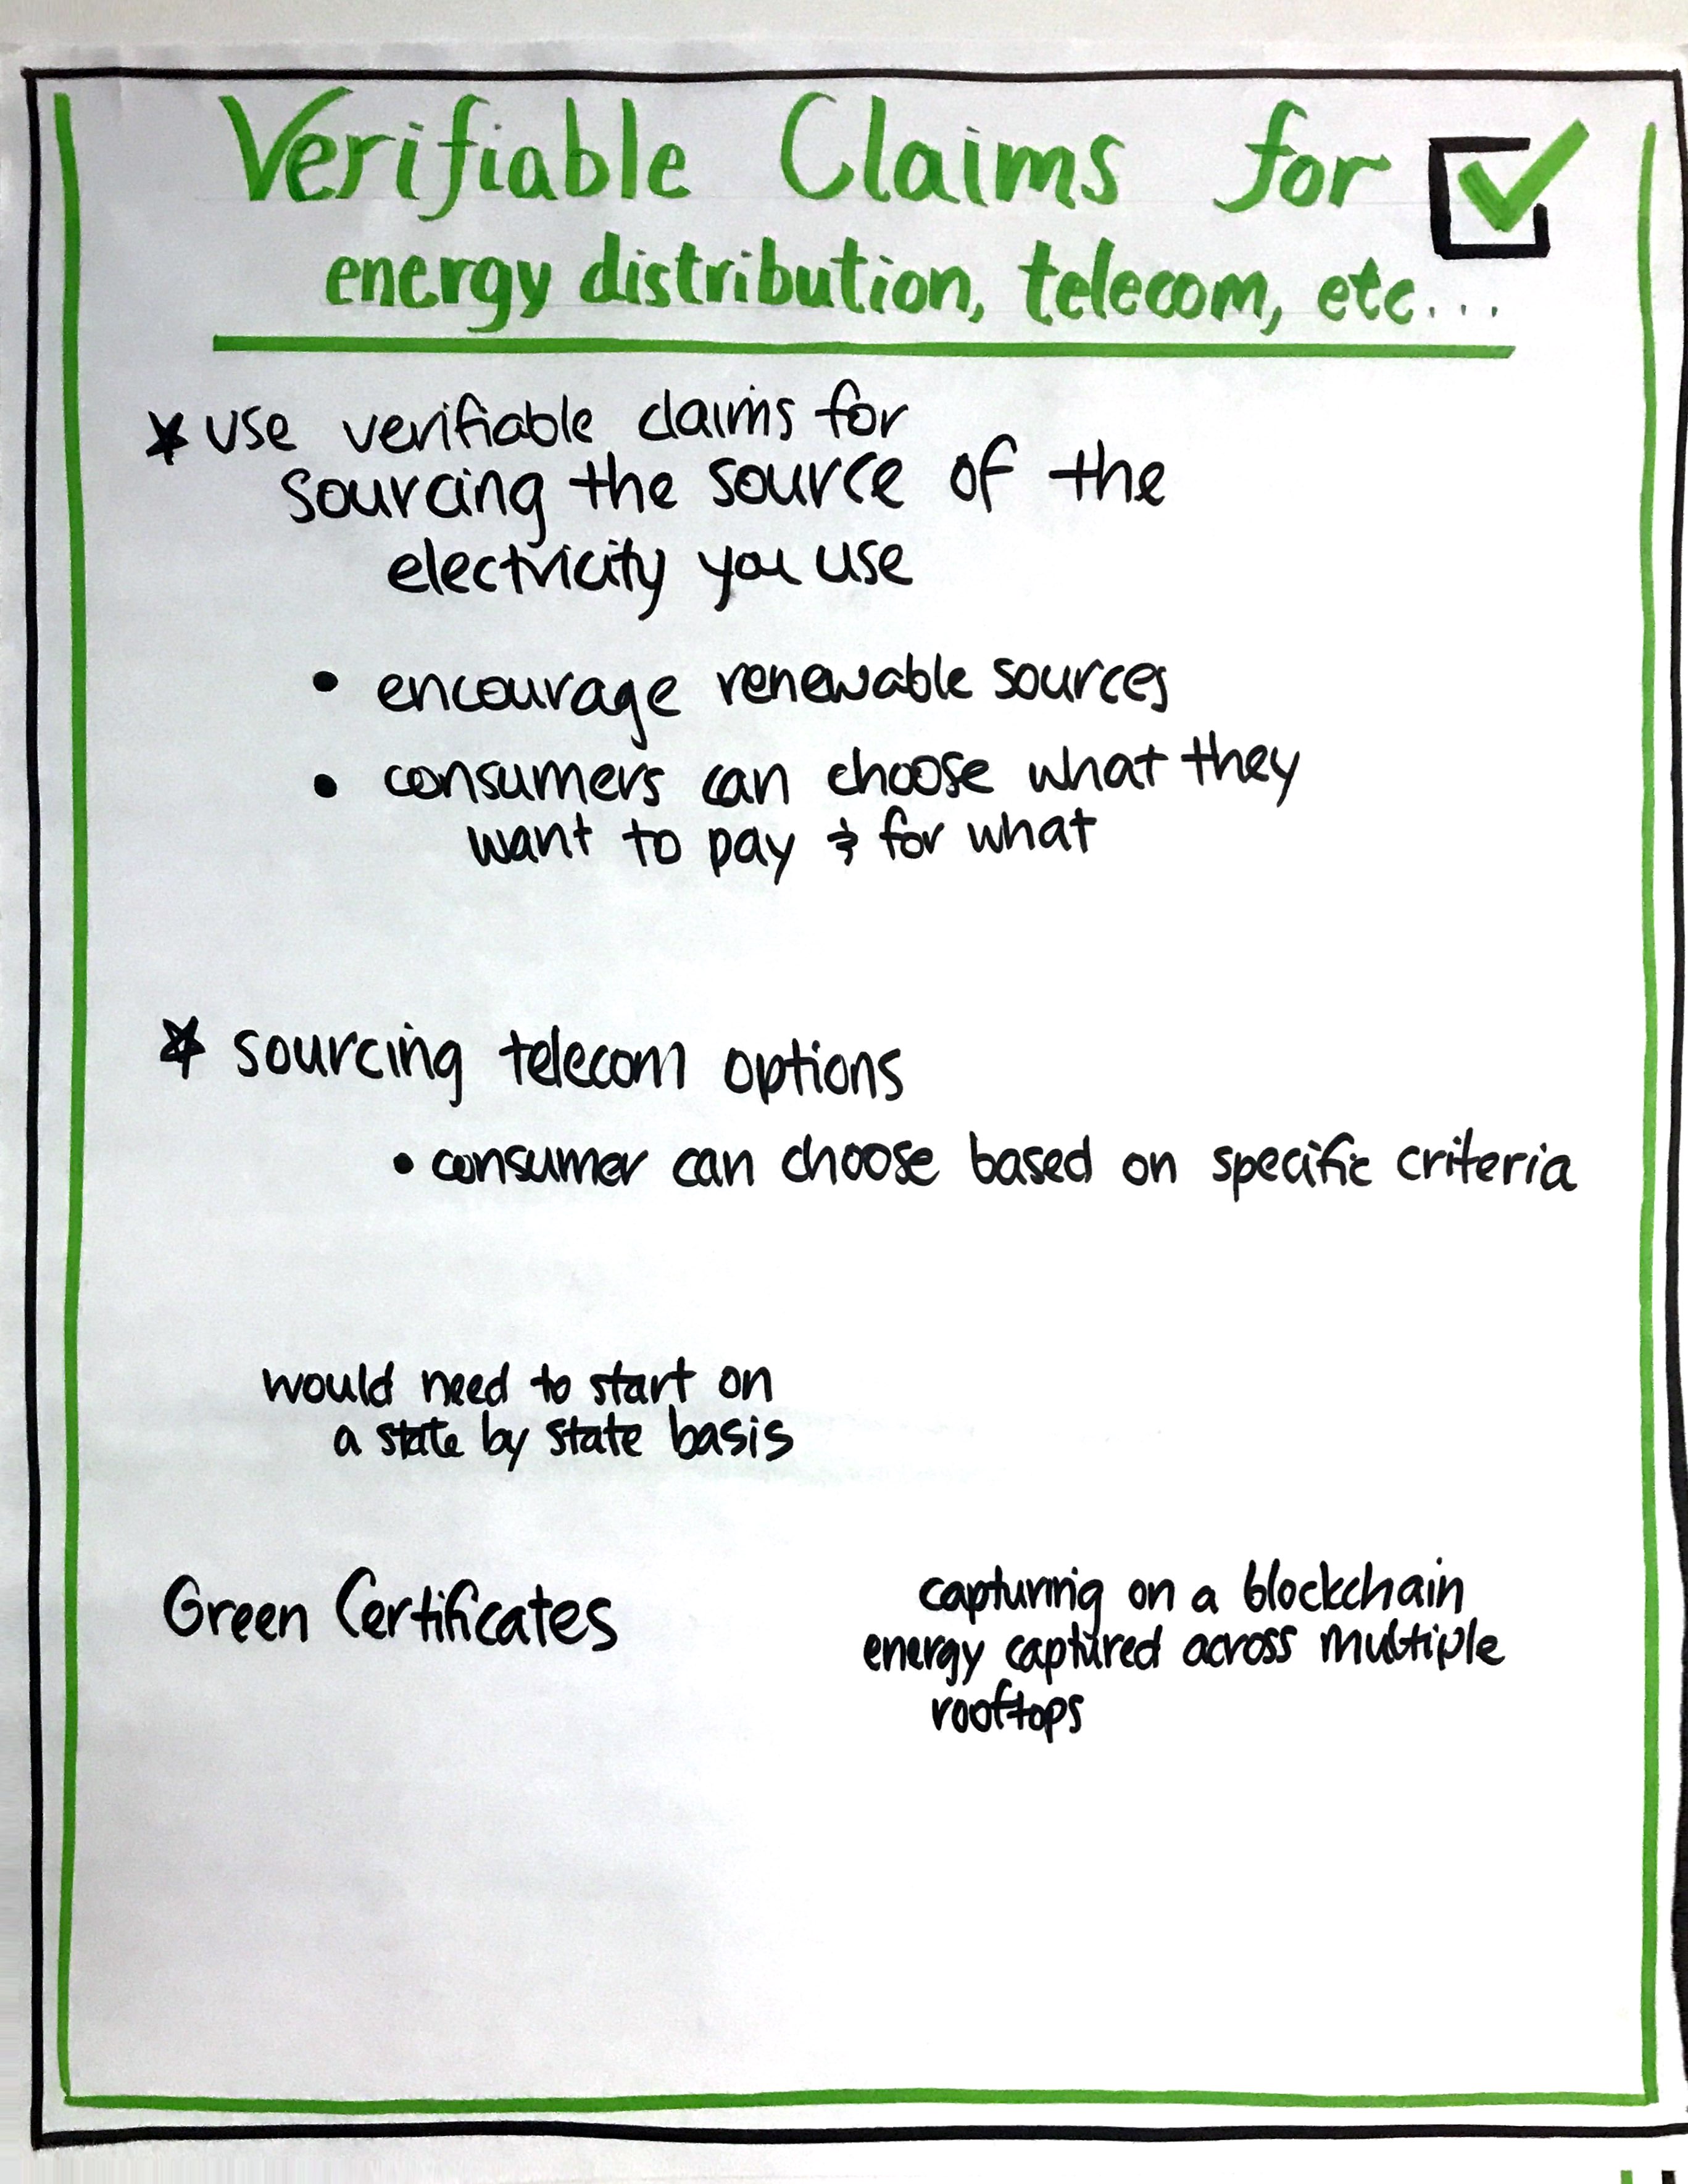 Verifiable Claims for
energy distribution, telecom, etc...
* use verifiable claims for
sourcing the source of the
electricity you use
• encourage renewable sources
• consumers can choose what they
want to pay & for what
* sourcing telecom options
• consumer can choose based on specific criteria
would need to start on
a state by state basis
Green Certificates
capturing on a blockchain
energy captured across multiple
rooftops